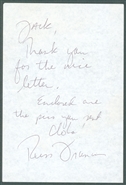 Jack,
Thank you
for the nice
letter!
Enclosed are
the pics you
Russ